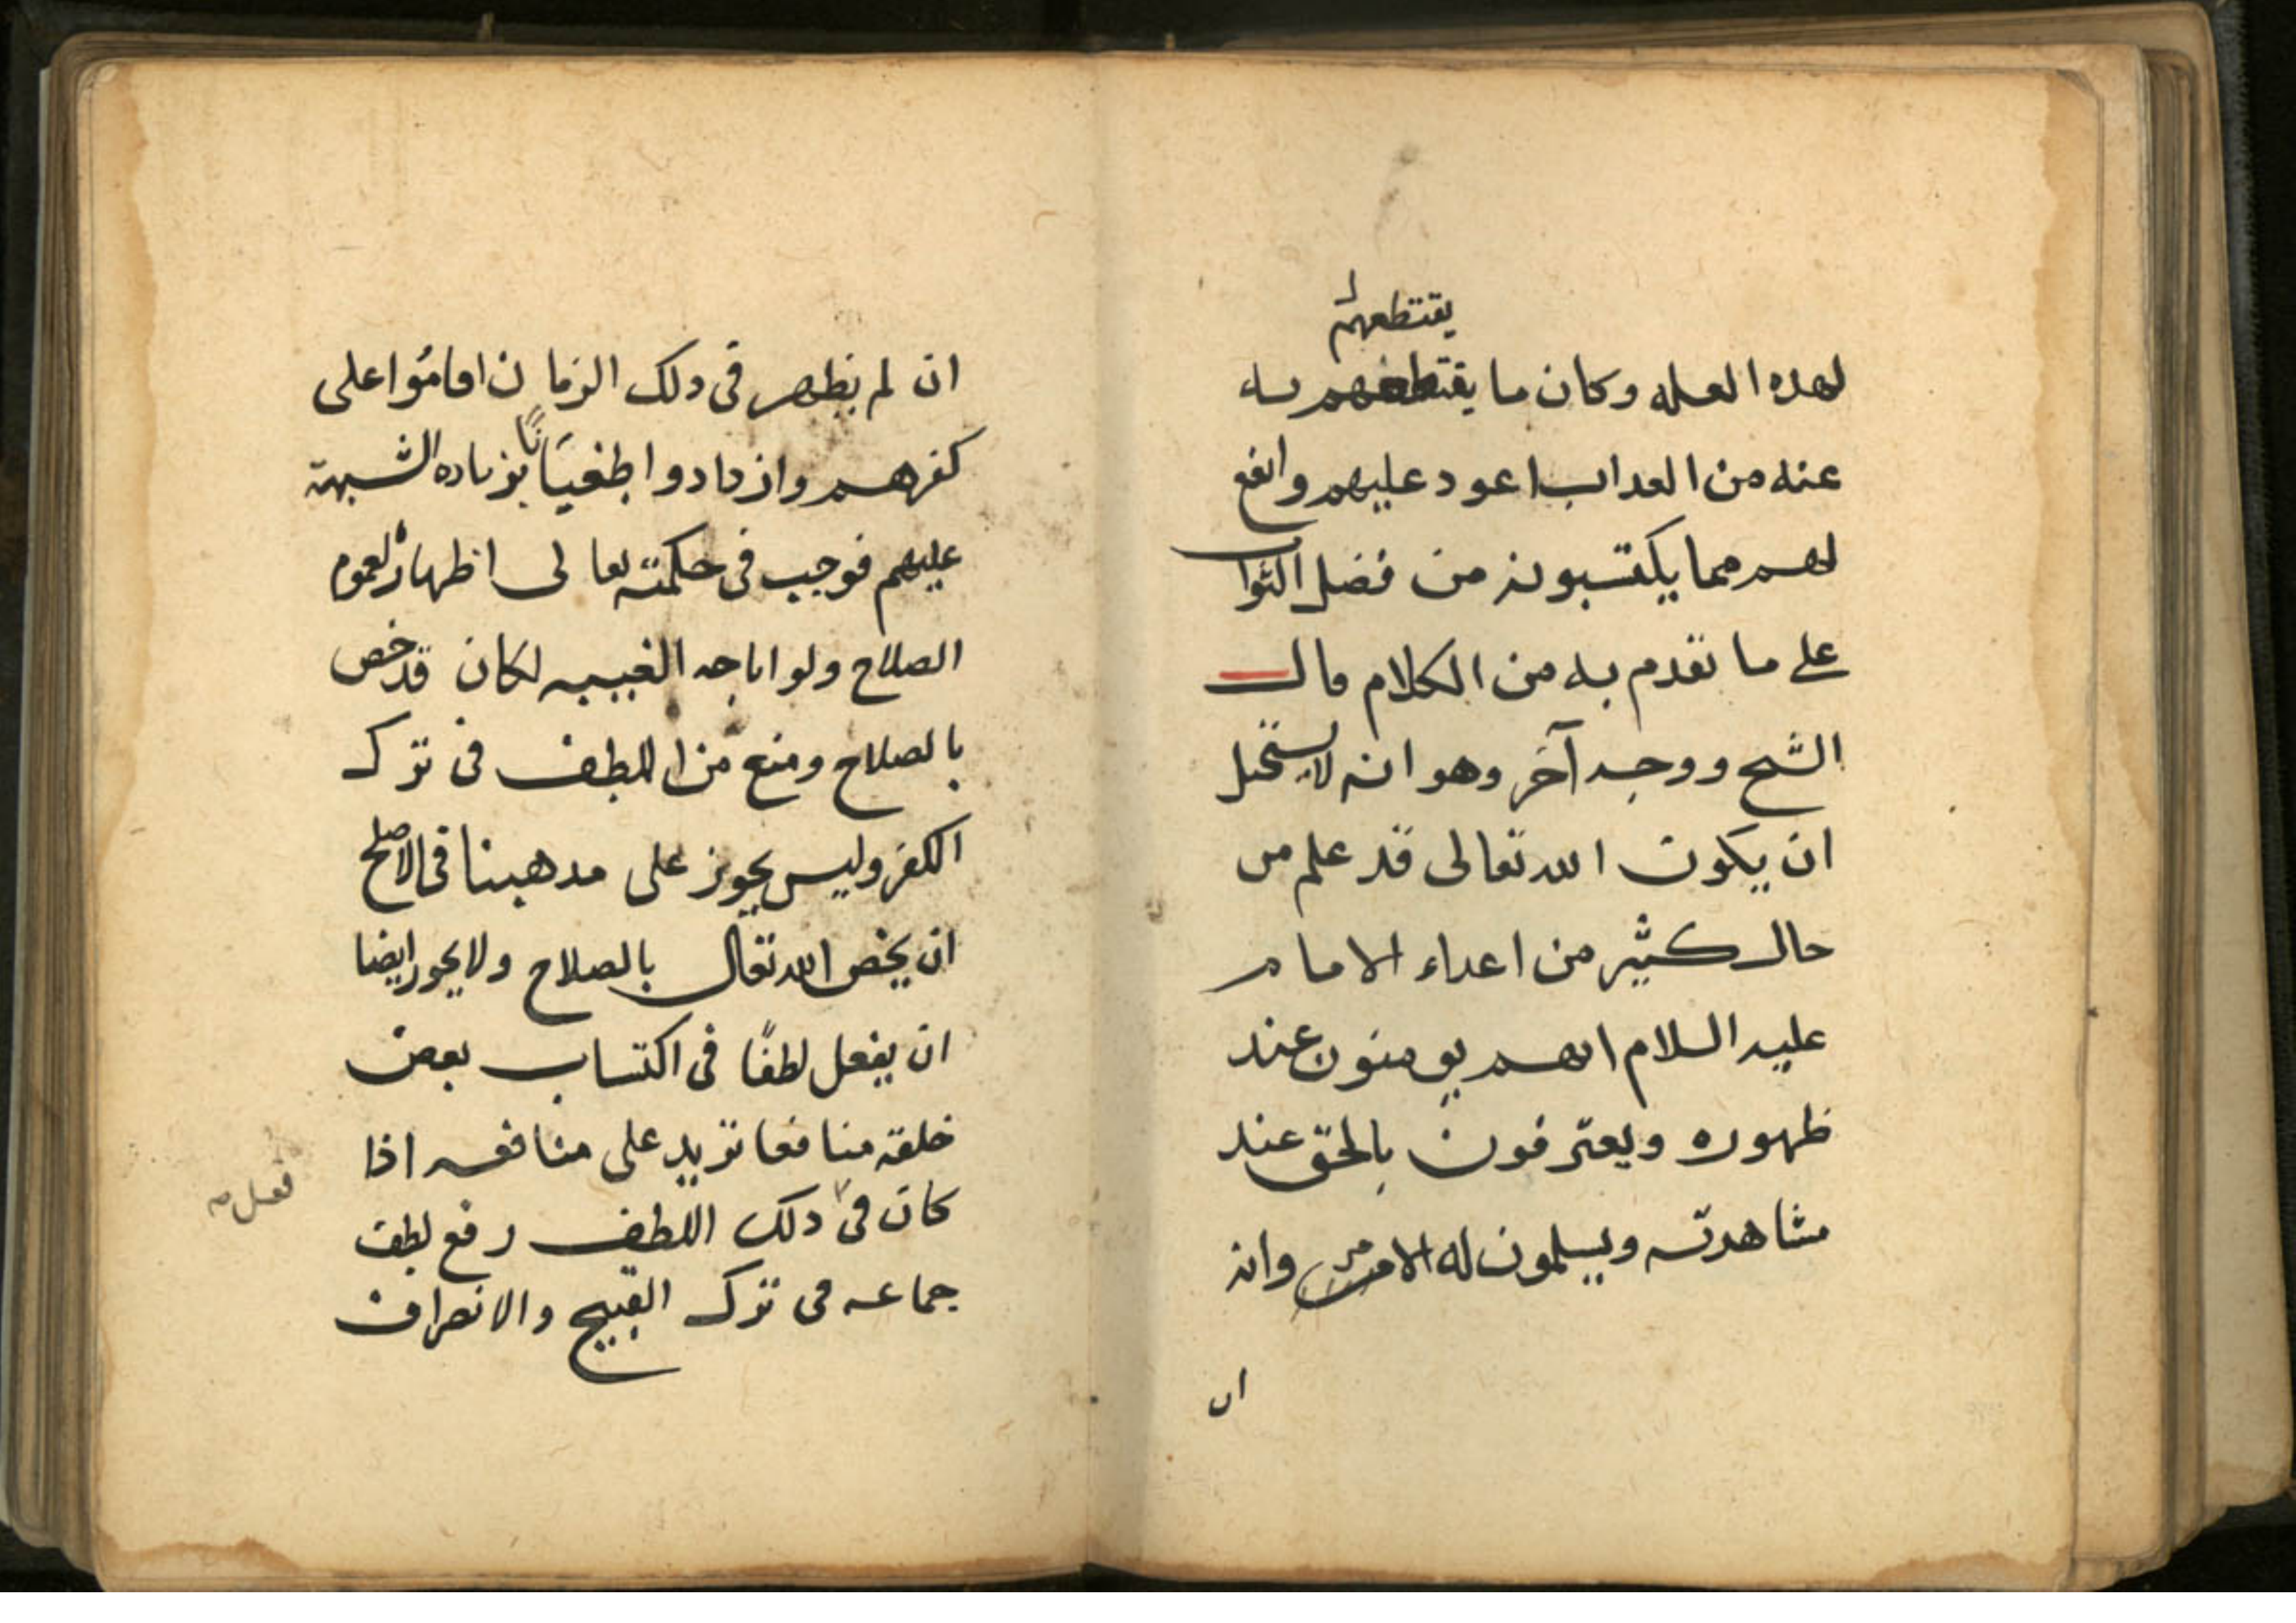 يقتطعهم
لهده العله وكان ما يقتطعهم به
عنه من العداب اعود عليهم وانفع
لهم مما يكتسبونه من فضل الثواب
على ما تقدم به من الكلام قال
الشيخ ووجه آخر وهو انه لا يستحيل
ان يكون الله تعالى قد علم من
حال كثير من اعداء الامام
عليه السلام انهم يومنون عند
ظهوره ويعترفون بالحق عند
مشاهدته ويسلمون له الامر وانه
ان
ان لم يظهر في دلك الزمان اقاموا على
كفرهم وازدادوا طغيانًا بزياده الشبهة
عليهم فوجب في حكمته تعالى اظهاره لعموم
الصلاح ولو اباحه الغيبه لكان قد خص
بالصلاح ومنع من اللطف في ترك
الكفر وليس يجوز على مدهبنا في الاصلح
ان يخص الله تعالى بالصلاح ولا يجوز ايضا
ان يفعل لطفًا في اكتساب بعض
خلقه منافعا تزيد على منافعه اذا
كان في دلك اللطف رفع لطف
فعل
جماعه في ترك القبيح والانصراف